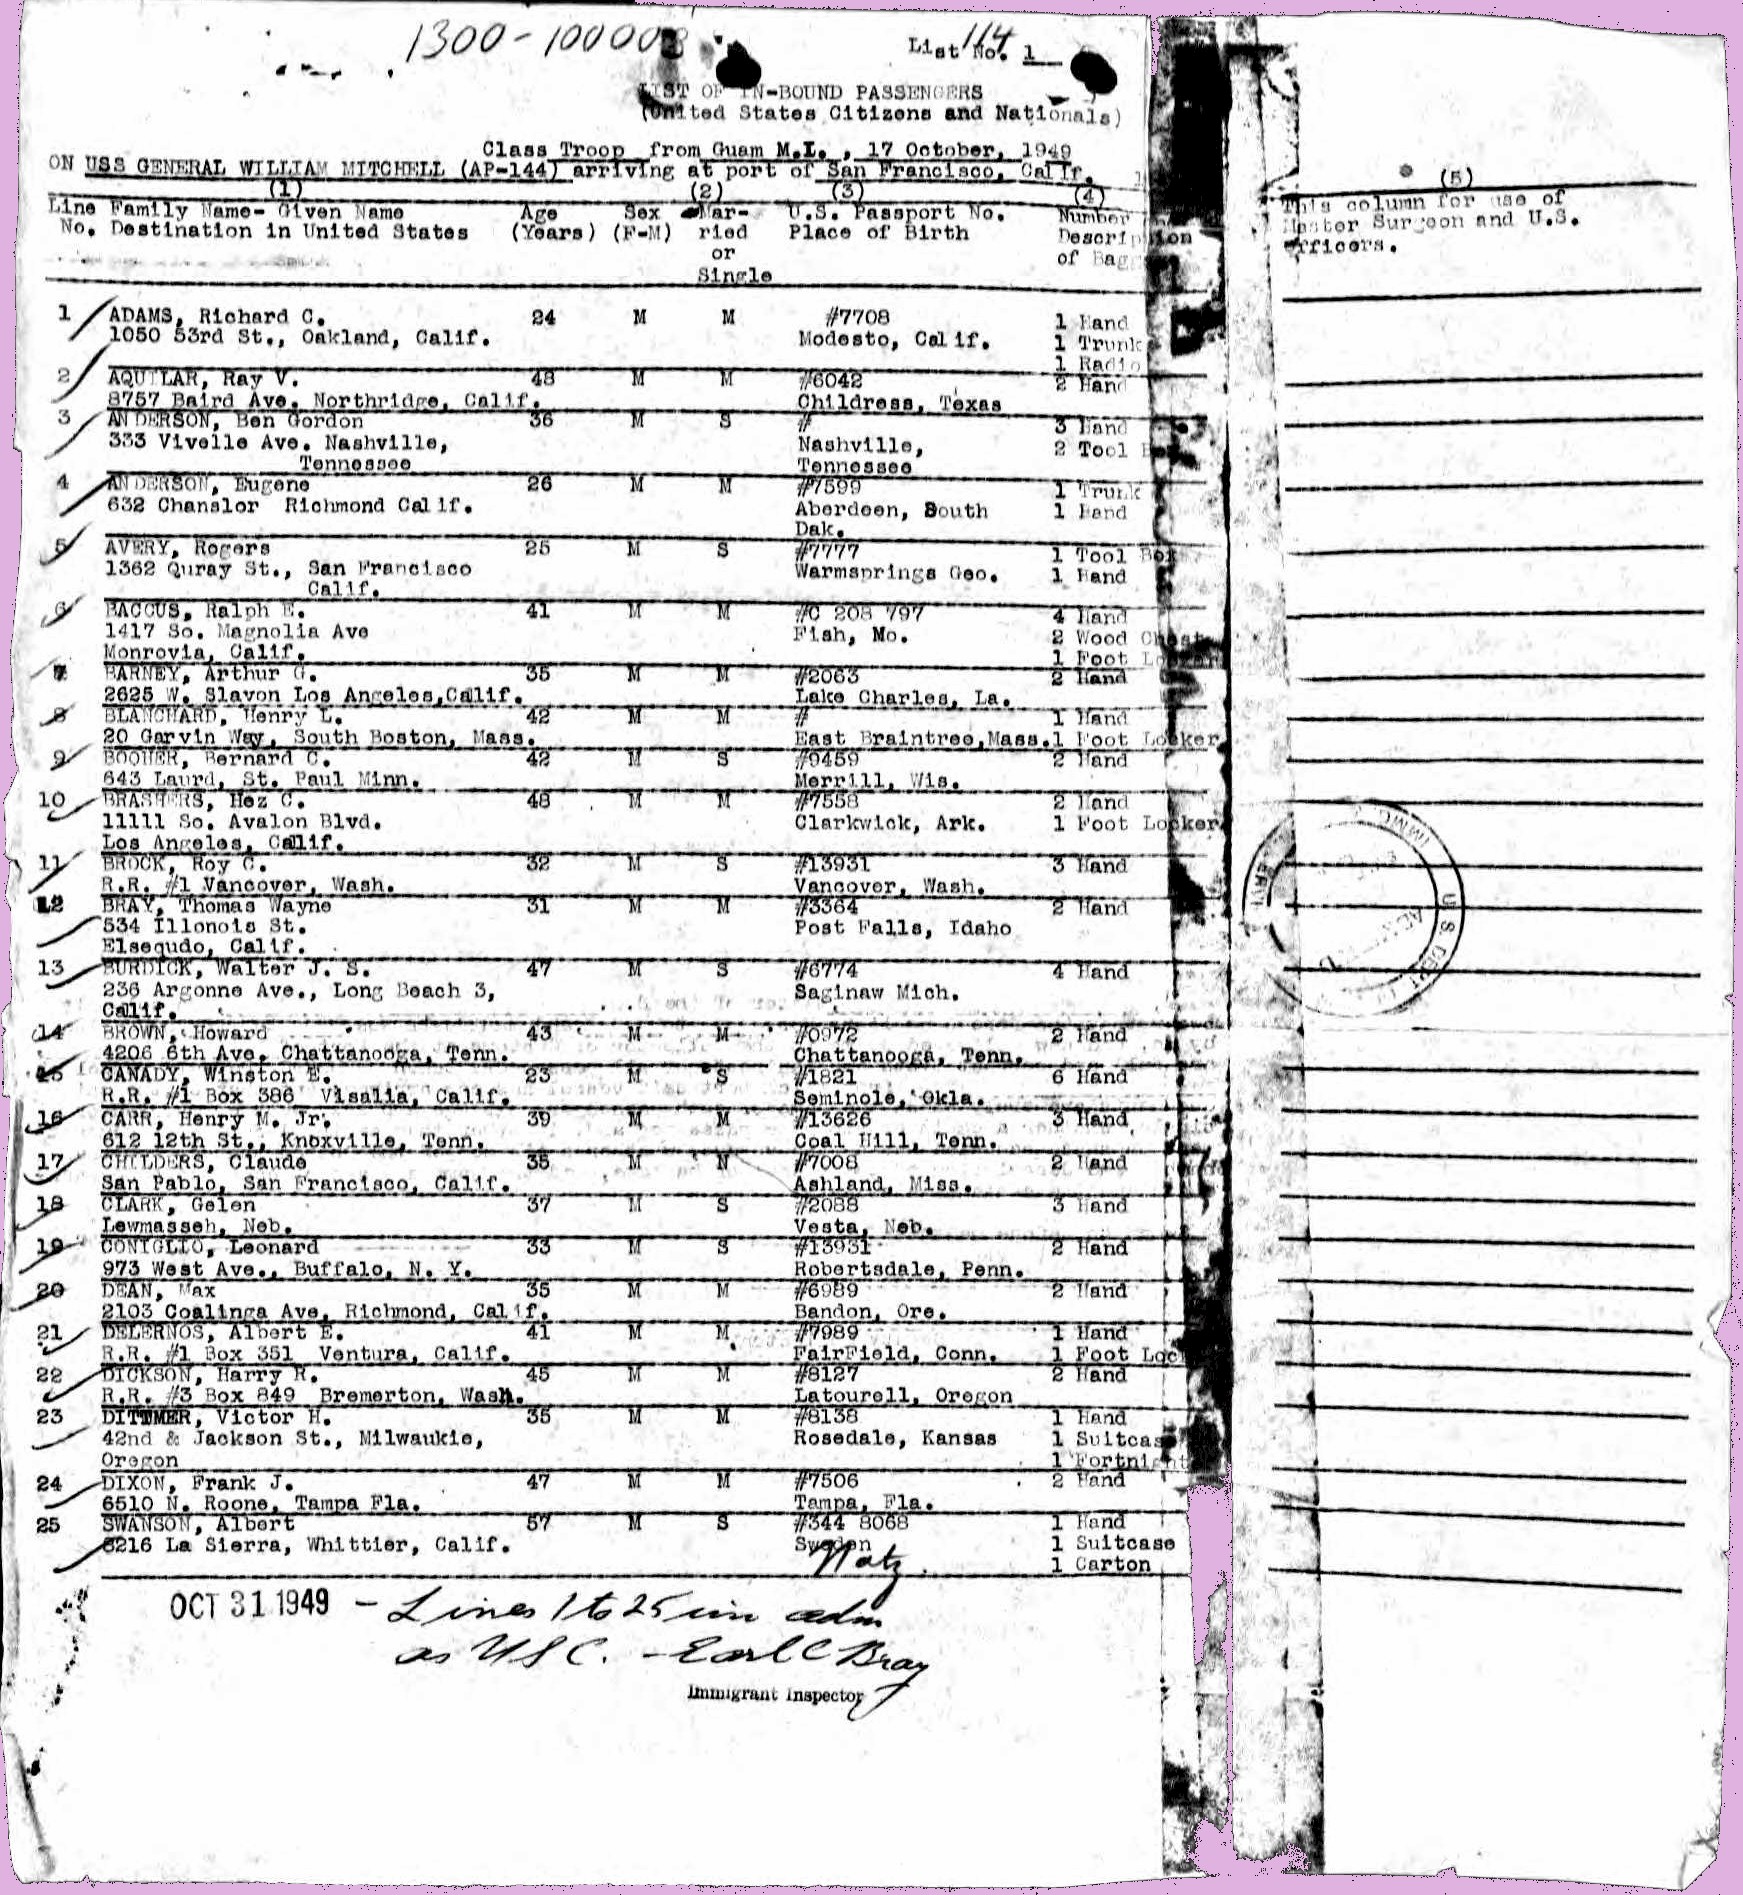 1300-10000
114
List No. 1
LIST OF IN-BOUND PASSENGERS
(United States Citizens and Nationals)
Class Troop from Guam M.I., 17 October, 1949
ON USS GENERAL WILLIAM MITCHELL (AP-144) arriving at port of San Francisco, Calif.
(1) (2) (3) (4) (5)
Line Family Name- Given Name Age Sex Mar- U.S. Passport No. Number This column for use of
No. Destination in United States (Years) (F-M) ried Place of Birth Description Master Surgeon and U.S.
or of Bag Officers.
Single
1 ADAMS, Richard C. 24 M M #7708 1 Hand
1050 53rd St., Oakland, Calif. Modesto, Calif. 1 Trunk
1 Radio
2 AQUILAR, Ray V. 48 M M #6042 2 Hand
8757 Baird Ave. Northridge, Calif. Childress, Texas
3 ANDERSON, Ben Gordon 36 M S # 3 Hand
333 Vivelle Ave. Nashville, Nashville, 2 Tool
Tennessee Tennessee
4 ANDERSON, Eugene 26 M M #7599 1 Trunk
632 Chanslor Richmond Calif. Aberdeen, South 1 Hand
Dak.
5 AVERY, Rogers 25 M S #7777 1 Tool Box
1362 Quray St., San Francisco Warmsprings Geo. 1 Hand
Calif.
6 BACCUS, Ralph E. 41 M M #C 208 797 4 Hand
1417 So. Magnolia Ave Fish, Mo. 2 Wood Chest
Monrovia, Calif. 1 Foot Locker
7 BARNEY, Arthur G. 35 M M #2063 2 Hand
2625 W. Slavon Los Angeles,Calif. Lake Charles, La.
8 BLANCHARD, Henry L. 42 M M # 1 Hand
20 Garvin Way, South Boston, Mass. East Braintree,Mass. 1 Foot Locker
9 BOOHER, Bernard C. 42 M S #9459 2 Hand
643 Laurd, St. Paul Minn. Merrill, Wis.
10 BRASHERS, Hez C. 48 M M #7558 2 Hand
11111 So. Avalon Blvd. Clarkwick, Ark. 1 Foot Locker
Los Angeles, Calif.
11 BROCK, Roy C. 32 M S #13931 3 Hand
R.R. #1 Vancover, Wash. Vancover, Wash.
12 BRAY, Thomas Wayne 31 M M #3364 2 Hand
534 Illonois St. Post Falls, Idaho
Elsequdo, Calif.
13 BURDICK, Walter J. S. 47 M S #6774 4 Hand
236 Argonne Ave., Long Beach 3, Saginaw Mich.
Calif.
14 BROWN, Howard 43 M M #0972 2 Hand
4206 6th Ave, Chattanooga, Tenn. Chattanooga, Tenn.
15 CANADY, Winston E. 23 M S #1821 6 Hand
R.R. #1 Box 386 Visalia, Calif. Seminole, Okla.
16 CARR, Henry M. Jr. 39 M M #13626 3 Hand
612 12th St., Knoxville, Tenn. Coal Hill, Tenn.
17 CHILDERS, Claude 35 M N #7008 2 Hand
San Pablo, San Francisco, Calif. Ashland, Miss.
18 CLARK, Gelen 37 M S #2088 3 Hand
Lewmasseh, Neb. Vesta, Neb.
19 CONIGLIO, Leonard 33 M S #13931 2 Hand
973 West Ave., Buffalo, N. Y. Robertsdale, Penn.
20 DEAN, Max 35 M M #6989 2 Hand
2103 Coalinga Ave, Richmond, Calif. Bandon, Ore.
21 DELERNOS, Albert E. 41 M M #7989 1 Hand
R.R. #1 Box 351 Ventura, Calif. FairField, Conn. 1 Foot Loc
22 DICKSON, Harry R. 45 M M #8127 2 Hand
R.R. #3 Box 849 Bremerton, Wash. Latourell, Oregon
23 DITTMER, Victor H. 35 M M #8138 1 Hand
42nd & Jackson St., Milwaukie, Rosedale, Kansas 1 Suitcase
Oregon 1 Fortnight
24 DIXON, Frank J. 47 M M #7506 2 Hand
6510 N. Roone, Tampa Fla. Tampa, Fla.
25 SWANSON, Albert 57 M S #344 8068 1 Hand
8216 La Sierra, Whittier, Calif. Sweden 1 Suitcase
Natz. 1 Carton
OCT 31 1949 - Lines 1 to 25 inc adm
as USC. - Earl C Bray
Immigrant Inspector